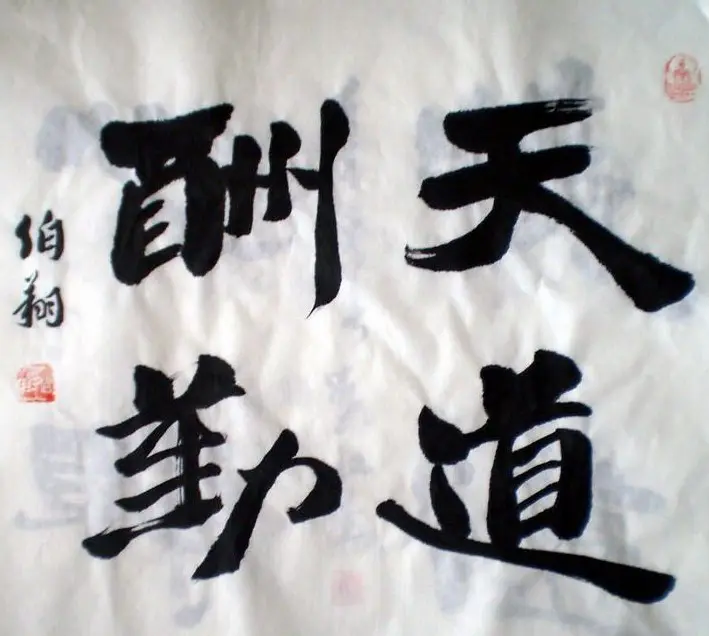 天道
酬勤
伯翔